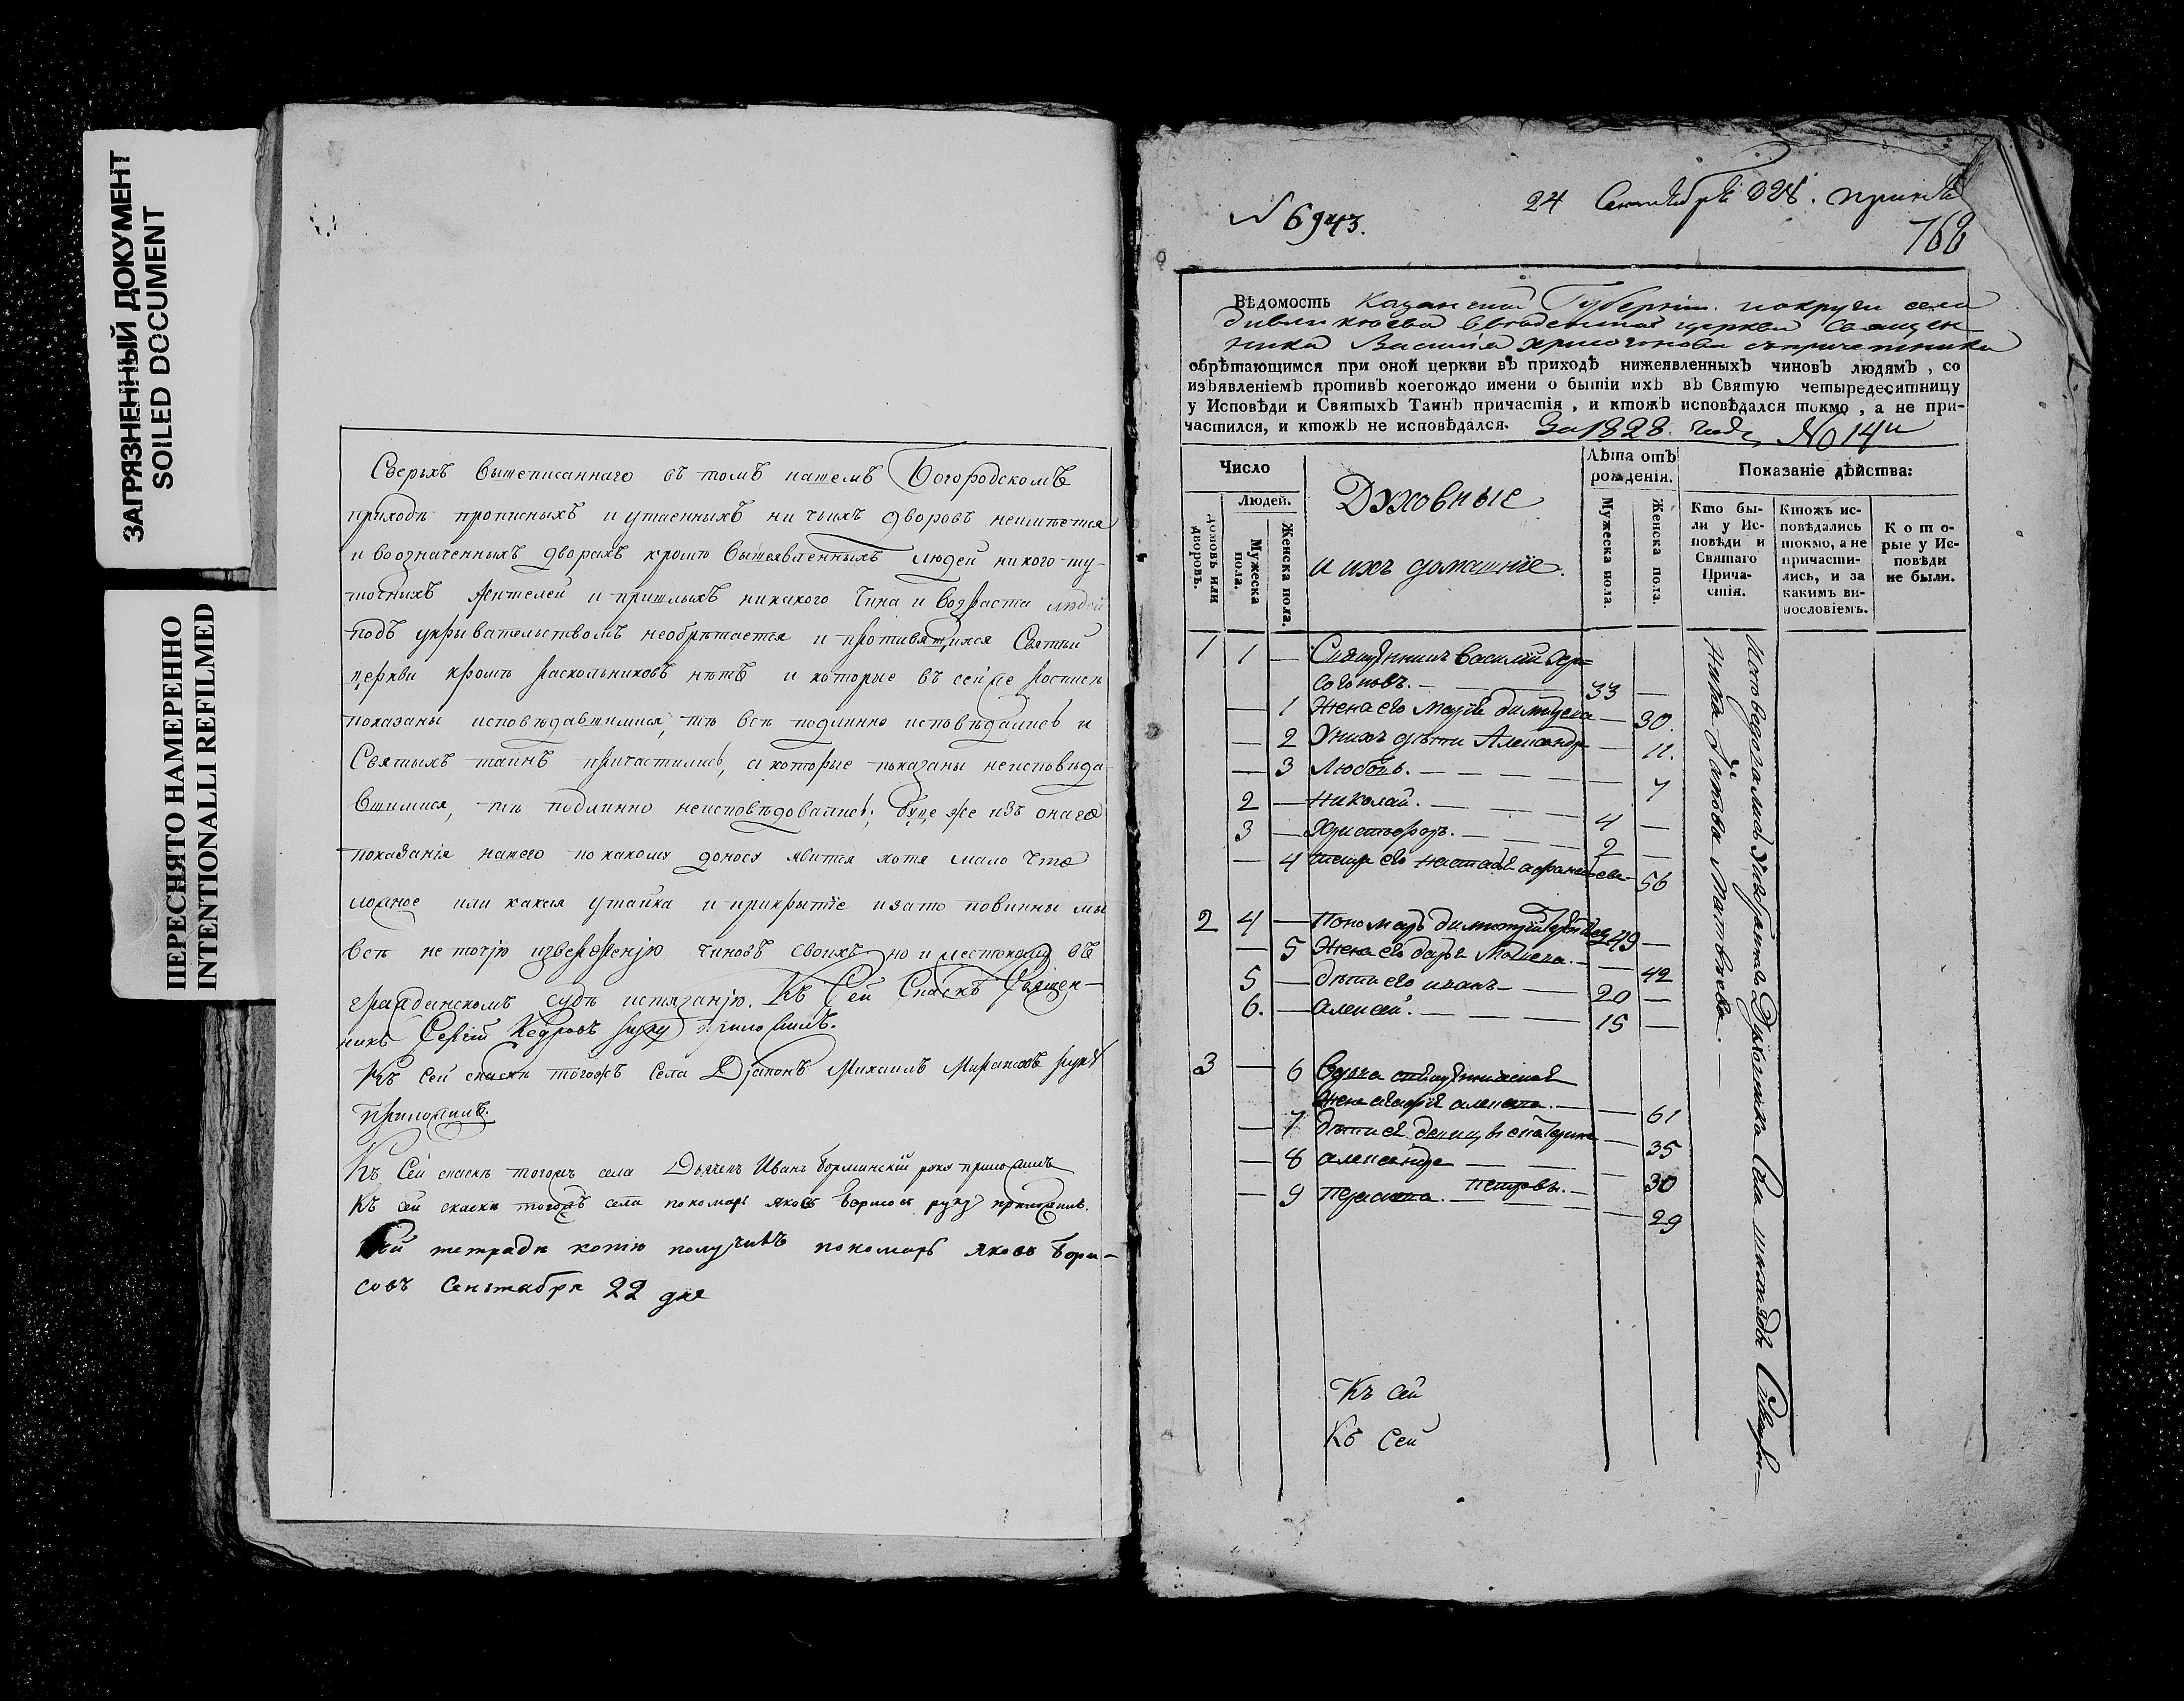 ЗАГРЯЗНЕННЫЙ ДОКУМЕНТ
SOILED DOCUMENT
ПЕРЕСНЯТО НАМЕРЕННО
INTENTIONALLI REFILMED
Сверьхъ вышеписаннаго въ томъ нашемъ Богородскомъ
приходѣ прописныхъ и утаенныхъ ни чьихъ дворовъ неимѣется
и воозначенныхъ дворахъ кромѣ вышеявленныхъ людей никого ту-
тошнихъ жителей и пришлыхъ никакого чина и возраста людей
подъ укрывательствомъ необрѣтается и противящихся Святый
церкви кромѣ раскольниковъ нѣтъ и которые въ сей же росписи
показаны исповѣдавшимися, тѣ всѣ подлинно исповѣдались и
Святыхъ таинъ причастились, а которые показаны неисповѣда
вшимися, тѣ подлинно неисповѣдовались; буде же изъ онаго
показанія нашего по какому доносу явится хотя мало что
ложное или какая утайка и прикрытіе изато повинны мы
всѣ не точію изверженію чиновъ своихъ но и жестокому въ
гражданскомъ судѣ истязанію. Къ Сей Скаскѣ Священ-
никъ Сергій Кедровъ руку приложилъ.
Къ сей скаскѣ тогожъ села Діаконъ Михаилъ руку
приложилъ.
Къ Сей скаскѣ тогожъ села Дьячекъ Иванъ Борминскій руку приложилъ
Къ сей скаскѣ тогожъ села пономарь Яковъ Борисовъ руку приложилъ.
Сей тетради копію получилъ пономарь Яковъ Бори-
совъ Сентября 22 дня
N 6943.
24 Сентября 828.
768
Вѣдомость Казанской Губерніи округи села
церкви Священ-
ника Василія Хрисогонова съпричетники
обрѣтающимся при оной церкви въ приходѣ нижеявленныхъ чиновъ людямъ, со
изъявленіемъ противъ коегождо имени о бытіи ихъ въ Святую четыредесятницу
у Исповѣди и Святыхъ Таинъ причастія, и ктожъ исповѣдался токмо, а не при-
частился, и ктожъ не исповѣдался. За 1828. годъ No 14й
Число
Людей.
домовъ или дворовъ.
Мужеска пола.
Женска пола.
Духовные
и ихъ домашніе.
Лѣта отъ рожденія.
Мужеска пола.
Женска пола.
Показаніе дѣйства:
Кто бы-
ли у Ис-
повѣди и
Святаго
Прича-
стія.
Ктожъ ис-
повѣдались
токмо, а не
причасти-
лись, и за
какимъ ви-
нословіемъ.
Кото-
рые у Ис-
повѣди
не были.
1 1 — Священникъ Василій Хри=
согоновъ. — 33 —
— 1 Жена его Марья — 30.
— 2 Унихъ дѣти Александра — 11.
— 3 Любовь. — 7
2 — Николай. — 4 —
3 — Христофоръ. — 2 —
— 4 теща его Настасья — 56
2 4 — Пономарь Димитрій 49 —
— 5 Жена его Дарья — 42
5 — Дѣти его Иванъ — 20 —
6. — Алексей. — 15 —
3 — 6 Вдова священническая
жена — 61
— 7 Дѣти ея девицы Екатерина — 35
— 8 Александра — 30
— 9 петровы. — 29
Къ сей
Къ Сей